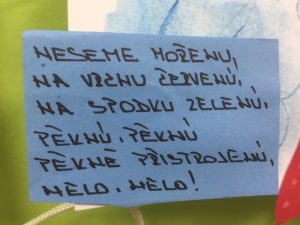 NESEME MOŘENU,
NA VRCHU ČERVENÚ,
NA SPODKU ZELENÚ,
PĚKNÚ, PĚKNÚ
PĚKNĚ PŘISTROJENÚ,
HELO, HELO!